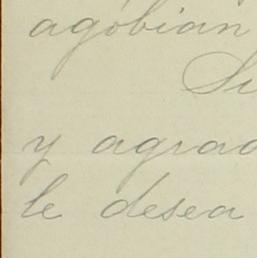 agobian
Su
y agrad
le desea